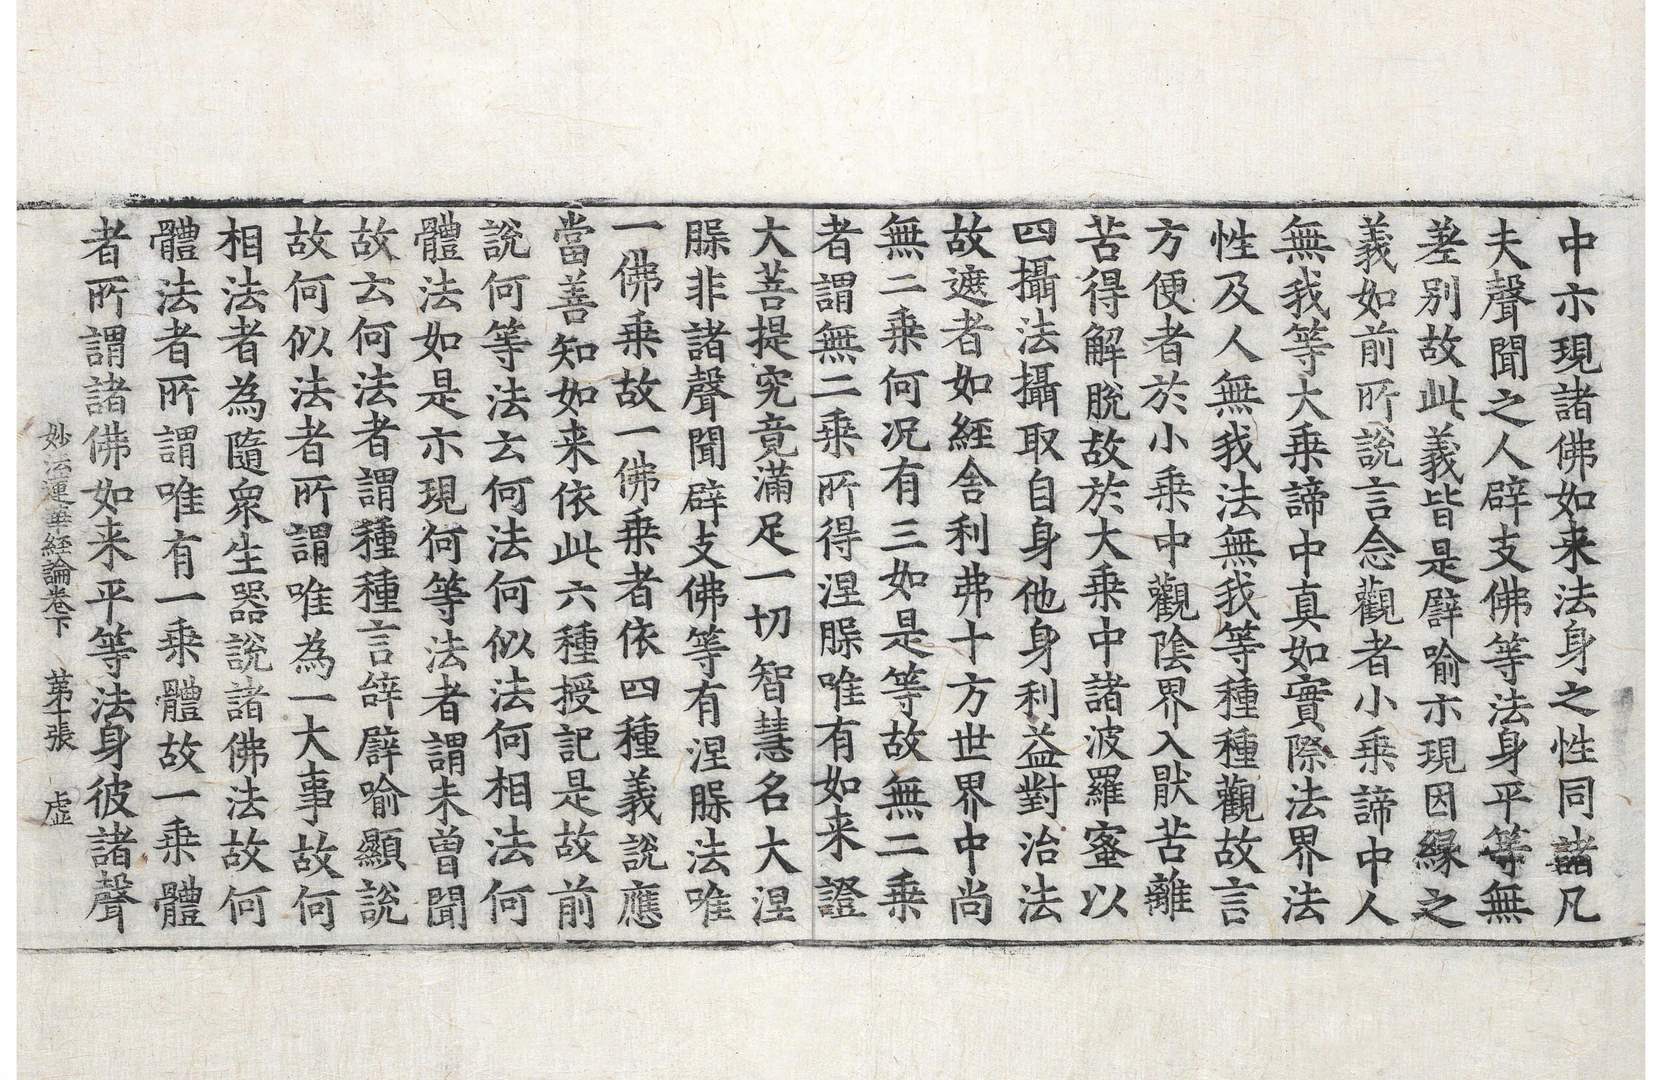 中示現諸佛如来法身之性同諸凡
夫聲聞之人辟支佛等法身平等無
差別故此義皆是譬喻示現因縁之
義如前所説言念觀者小乗諦中人
無我等大乗諦中真如實際法界法
性及人無我法無我等種種觀故言
方便者於小乗中觀陰界入猒苦離
苦得解脫故於大乗中諸波羅蜜以
四攝法攝取自身他身利益對治法
故遮者如經舎利弗十方世界中尚
無二乗何况有三如是等故無二乗
者謂無二乗所得涅槃唯有如来證
大菩提究竟滿足一切智慧名大涅
槃非諸聲聞辟支佛等有涅槃法唯
一佛乗故一佛乗者依四種義説應
當善知如来依此六種授記是故前
説何等法云何法何似法何相法何
體法如是示現何等法者謂未曽聞
故云何法者謂種種言辞譬喻顯説
故何似法者所謂唯為一大事故何
相法者為隨衆生器説諸佛法故何
體法者所謂唯有一乗體故一乗體
者所謂諸佛如来平等法身彼諸聲
妙法蓮華経論卷下 苐十張 虛